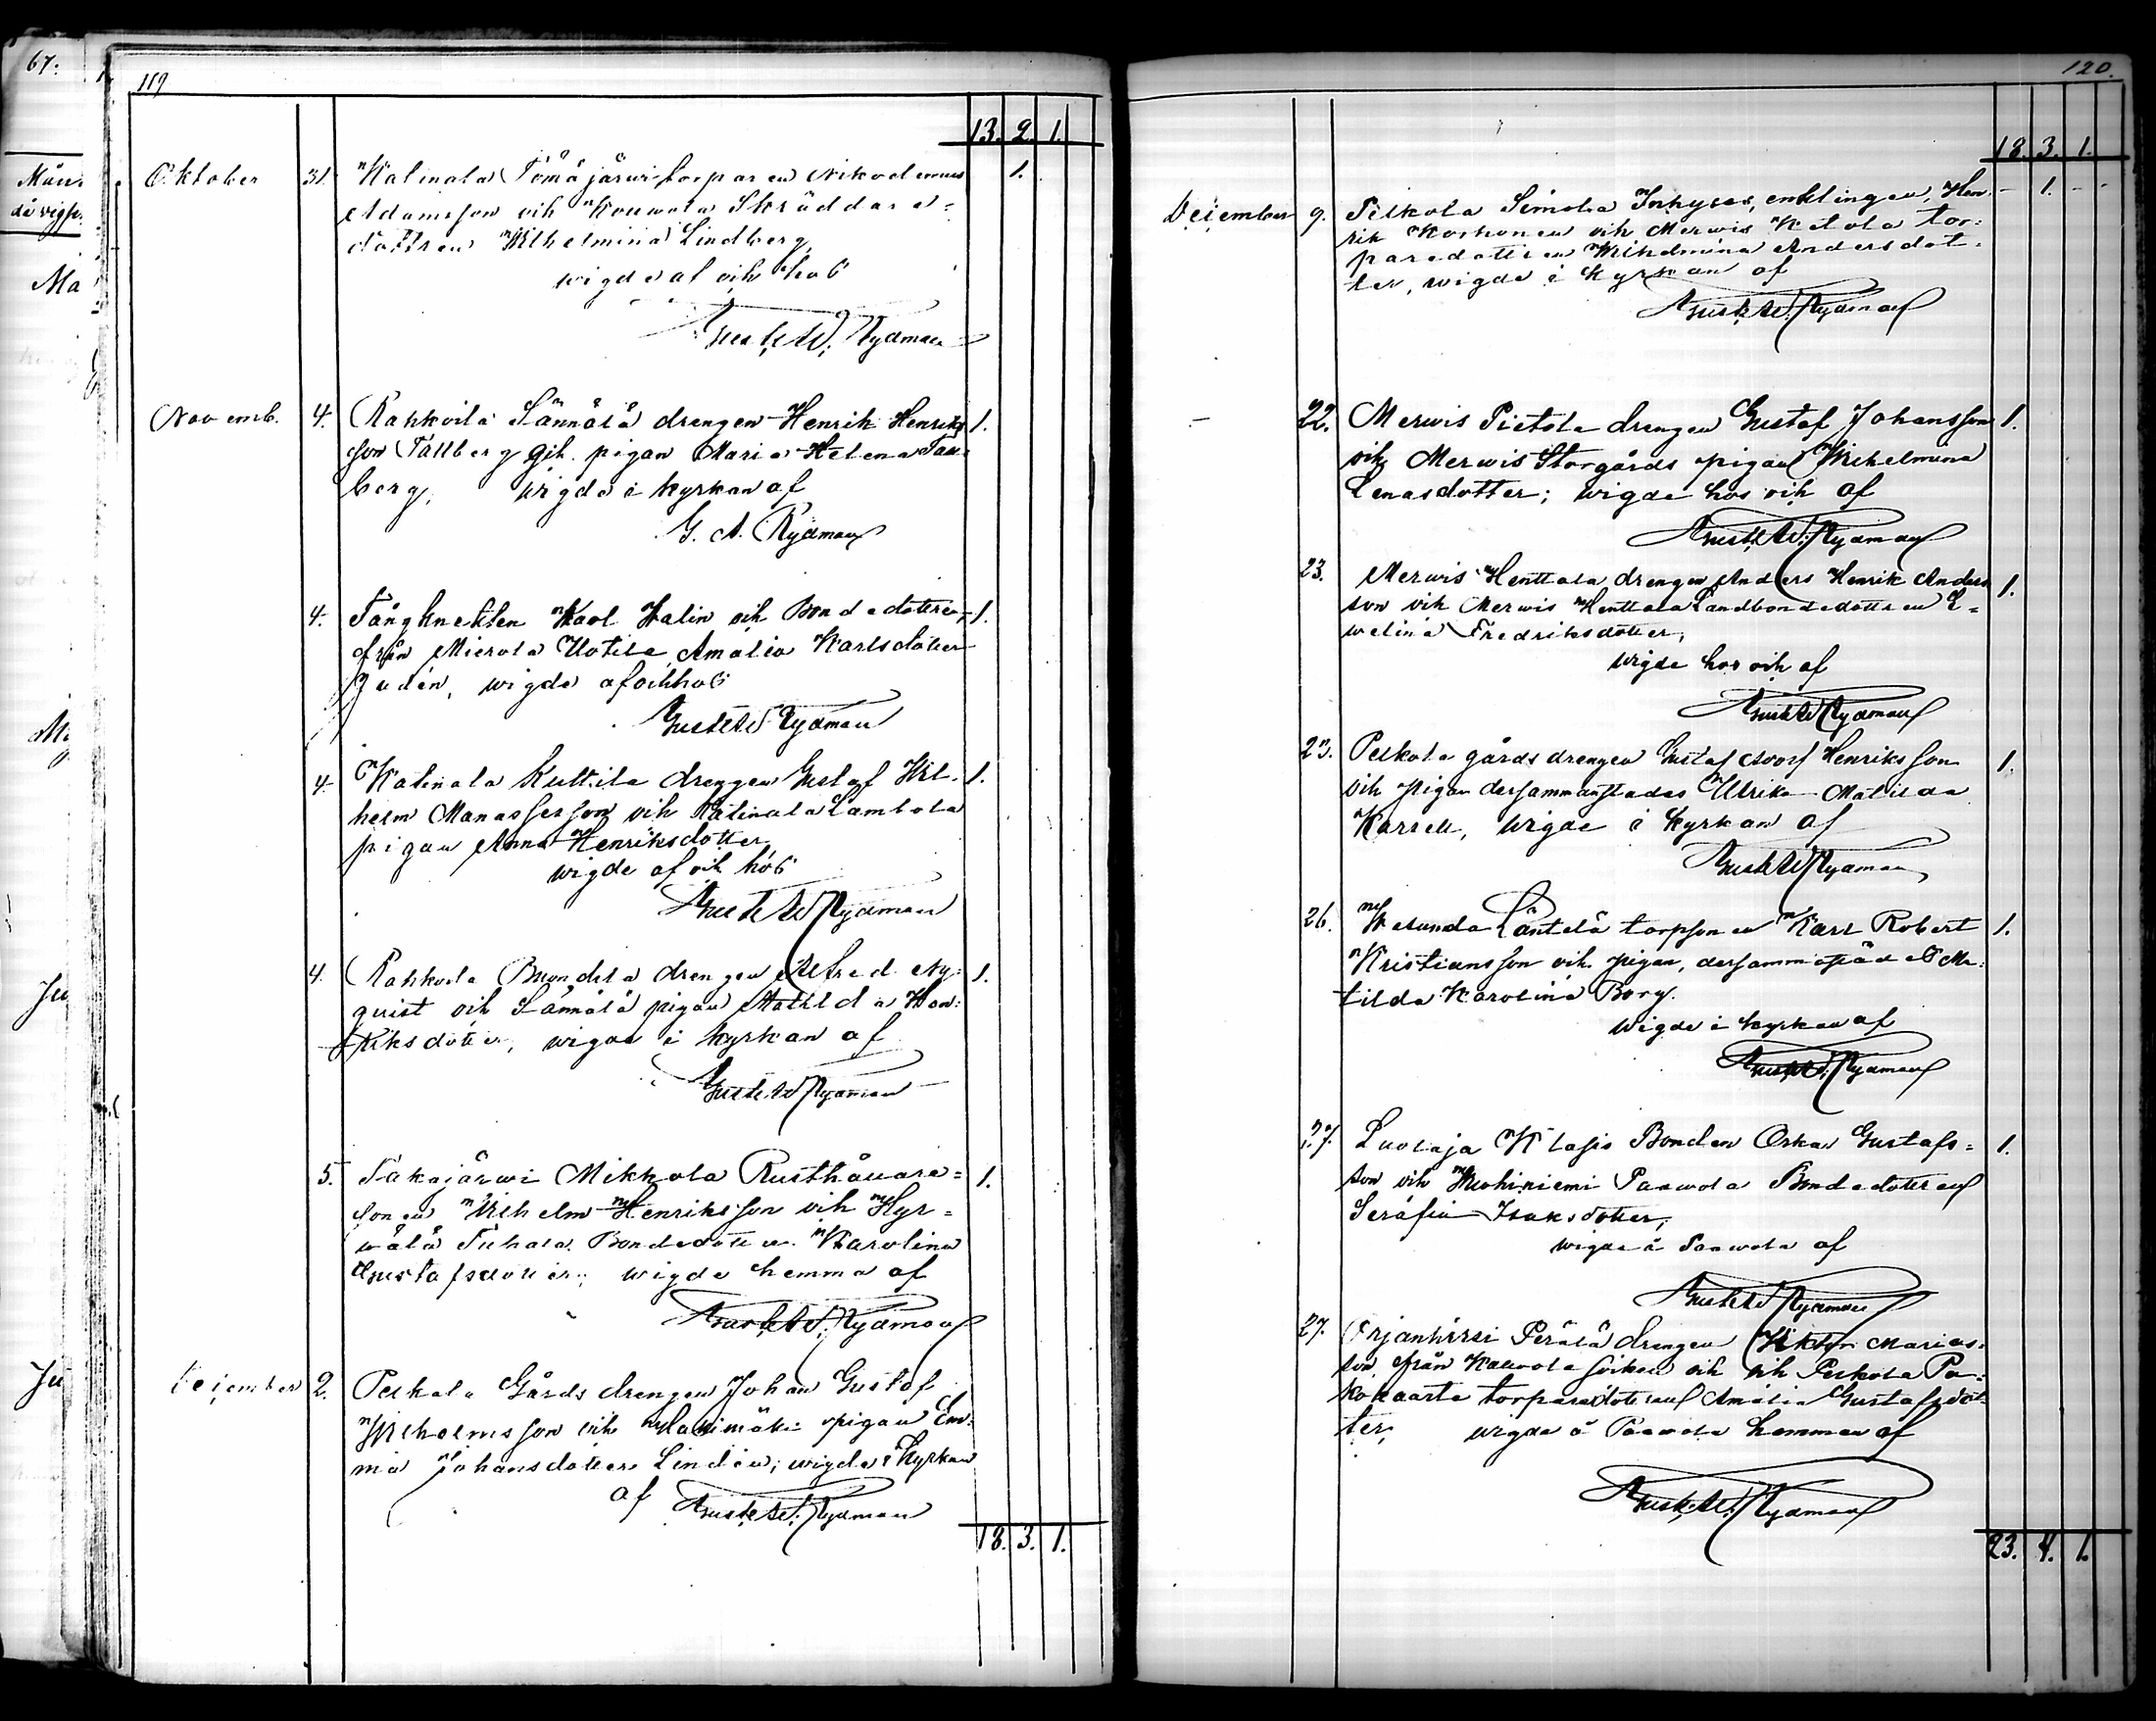 67.
119
13. 2. 1.
Oktober 31. Katinala Tömäjärwi torparen Nikodemus 1.
Adamsson och Kouwola Skräddare-
dottren Wilhelmina Lindberg,
wigde af och hos
Gust. Ad. Rydman
Novemb. 4. Rahkoila Sännälä drengen Henrik Henriks 1.
son Fällberg och pigan Maria Helena
berg, wigde i kyrkan af
G. A. Rydman
4. Fångknekten Karl Malin och Bondedottren 1.
från Mierola Uotila Amalia Karlsdotter
wigde af och hos
Gust Ad Rydman
4. Katinala Kuttila drengen Gustaf Wil- 1.
helm Manassesson och Katinala Lambola
pigan Anna Henriksdotter,
wigde af och hos
Gust Ad Rydman
4. Rahkoila drengen Alfred Ny- 1.
quist och Sännälä pigan Mathilda Hen-
riksdotter, wigde i kyrkan af
Gust. Ad Rydman
5. Takajärwi Mikkola Rusthållare- 1.
sonen Wilhelm Henriksson och Hyr-
wälä Bondedottren Karolina
Gustafsdotter; wigde hemma af
Gust. Ad. Rydman
December 2. Peskola Gårds drengen Johan Gustaf
Wilhelmsson och pigan Em-
ma Johansdotter Lindén; wigde i kyrkan
af Gust. Ad. Rydman
18. 3. 1.
120.
18. 3. 1.
December 9. Simola Inhyses, enklingen, Hen- 1.
rik Korhonen och Merwis Ketola tor-
paredottren Wilhelmina Andersdot-
ter, wigde i kyrkan af
Gust. Ad. Rydman
22. Merwis Pietola drengen Gustaf Johansson 1.
och Merwis Storgårds pigan Wilhelmina
Lenasdotter; wigde hos och af
Gust. Ad. Rydman
23. Merwis Henttala drengen Anders Henrik Anders 1.
son och Merwis Henttala Landbondedottren E-
welina Fredriksdotter,
wigde hos och af
Gust Ad Rydman
23. Peskola gårds drengen Gustaf Adolf Henriksson 1.
och pigan dersammanstädes Ulrika Matilda
Karsell, wigde i kyrkan af
Gust Ad Rydman
26. Wesunda Läntelä torpsonen Karl Robert 1.
Kristiansson och pigan, dersammastädes Ma-
tilda Karolina Borg.
wigde i kyrkan af
Gust. Ad. Rydman
27. Luolaja Klasis Bonden Oskar Gustafs- 1.
son och Wuohiniemi Paawola Bondedottren
Serafia Isaksdotter,
wigde å Paawola af
Gust Ad Rydman
27. Orjanhirsi Perälä drengen Wiktor Marias-
son från Kauwola socken och och Peskola Pa-
torparedottren Amalia Gustafsdot-
ter, wigde å Paawola hemman af
Gust. Ad. Rydman
23. 4. 1.